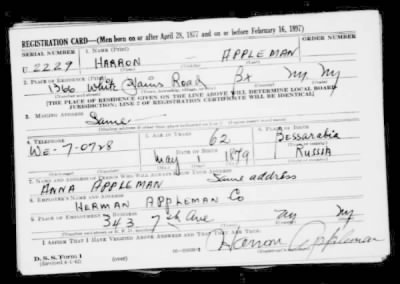 REGISTRATION CARD—(Men born on or after April 28, 1877 and on or before February 16, 1897)
SERIAL NUMBER 1. NAME (Print) ORDER NUMBER
U. 2229 HARRON APPLEMAN
2. PLACE OF RESIDENCE (Print)
1366 White Plains Road Bx NY NY
[THE PLACE OF RESIDENCE GIVEN ON THE LINE ABOVE WILL DETERMINE LOCAL BOARD
JURISDICTION; LINE 2 OF REGISTRATION CERTIFICATE WILL BE IDENTICAL]
3. MAILING ADDRESS
Same
4. TELEPHONE 5. AGE IN YEARS 6. PLACE OF BIRTH
62 Bessarabia
We-7-0748 DATE OF BIRTH
May 1 1879 RUSSIA
7. NAME AND ADDRESS OF PERSON WHO WILL ALWAYS KNOW YOUR ADDRESS
ANNA APPLEMAN Same address
8. EMPLOYER'S NAME AND ADDRESS
HERMAN APPLEMAN Co
9. PLACE OF EMPLOYMENT OR BUSINESS
343 7th Ave NY NY
I AFFIRM THAT I HAVE VERIFIED ABOVE ANSWERS AND THAT THEY ARE TRUE.
D. S. S. Form 1 Harron Appleman
(Revised 4-1-42) (over)